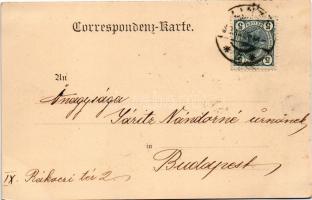 Correspondenz-Karte.
An
Őnagysága
Sáritz Nándorné úrnőnek
in
Budapest
IX. Rákoczi tér 2